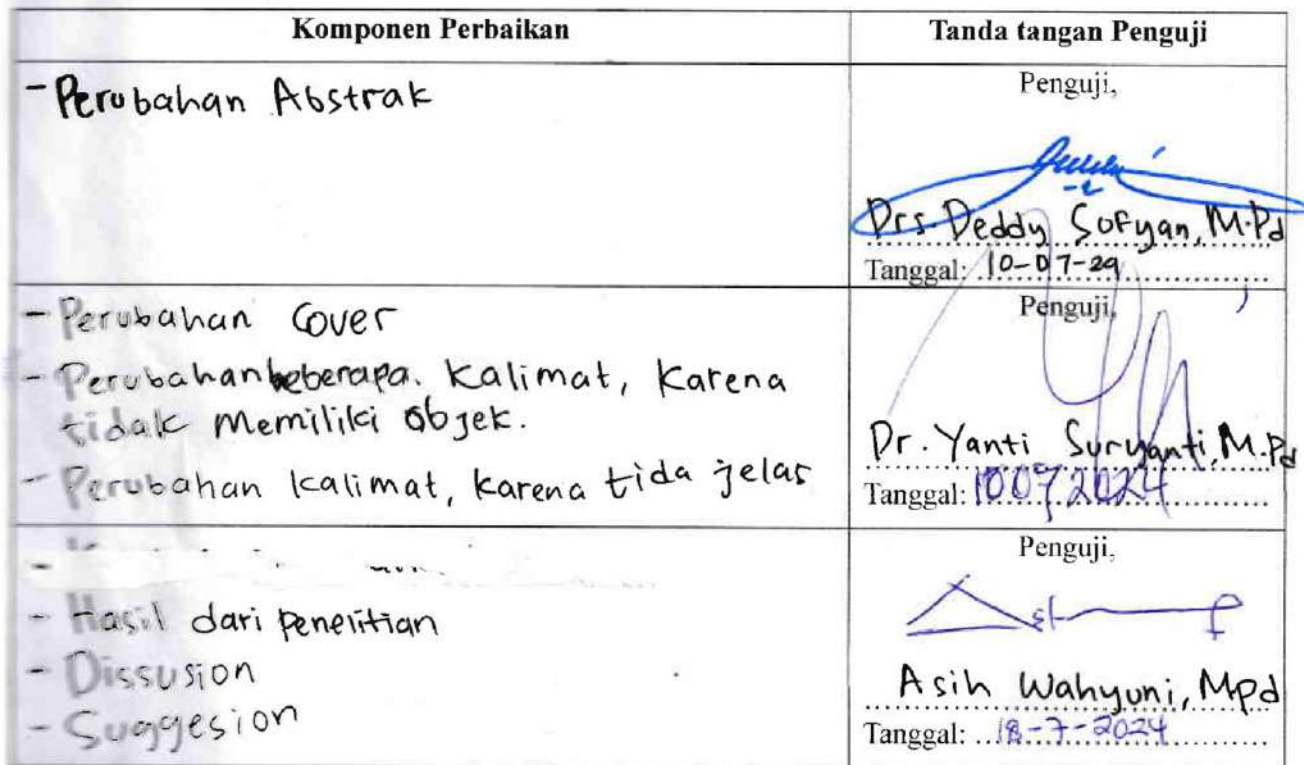 Komponen Perbaikan
Tanda tangan Penguji
- Perubahan Abstrak
Penguji,
Drs. Deddy Sofyan, M.Pd
Tanggal: 10-07-24
- Perubahan Cover
- Perubahan beberapa. Kalimat, Karena
tidak Memiliki Objek.
- Perubahan kalimat, karena tida jelas
Penguji,
Dr. Yanti Suryanti, M.Pd
Tanggal: 10 07 2024
- Hasil dari Penelitian
- Dissusion
- Suggesion
Penguji,
Asih Wahyuni, Mpd
Tanggal: 18-7-2024